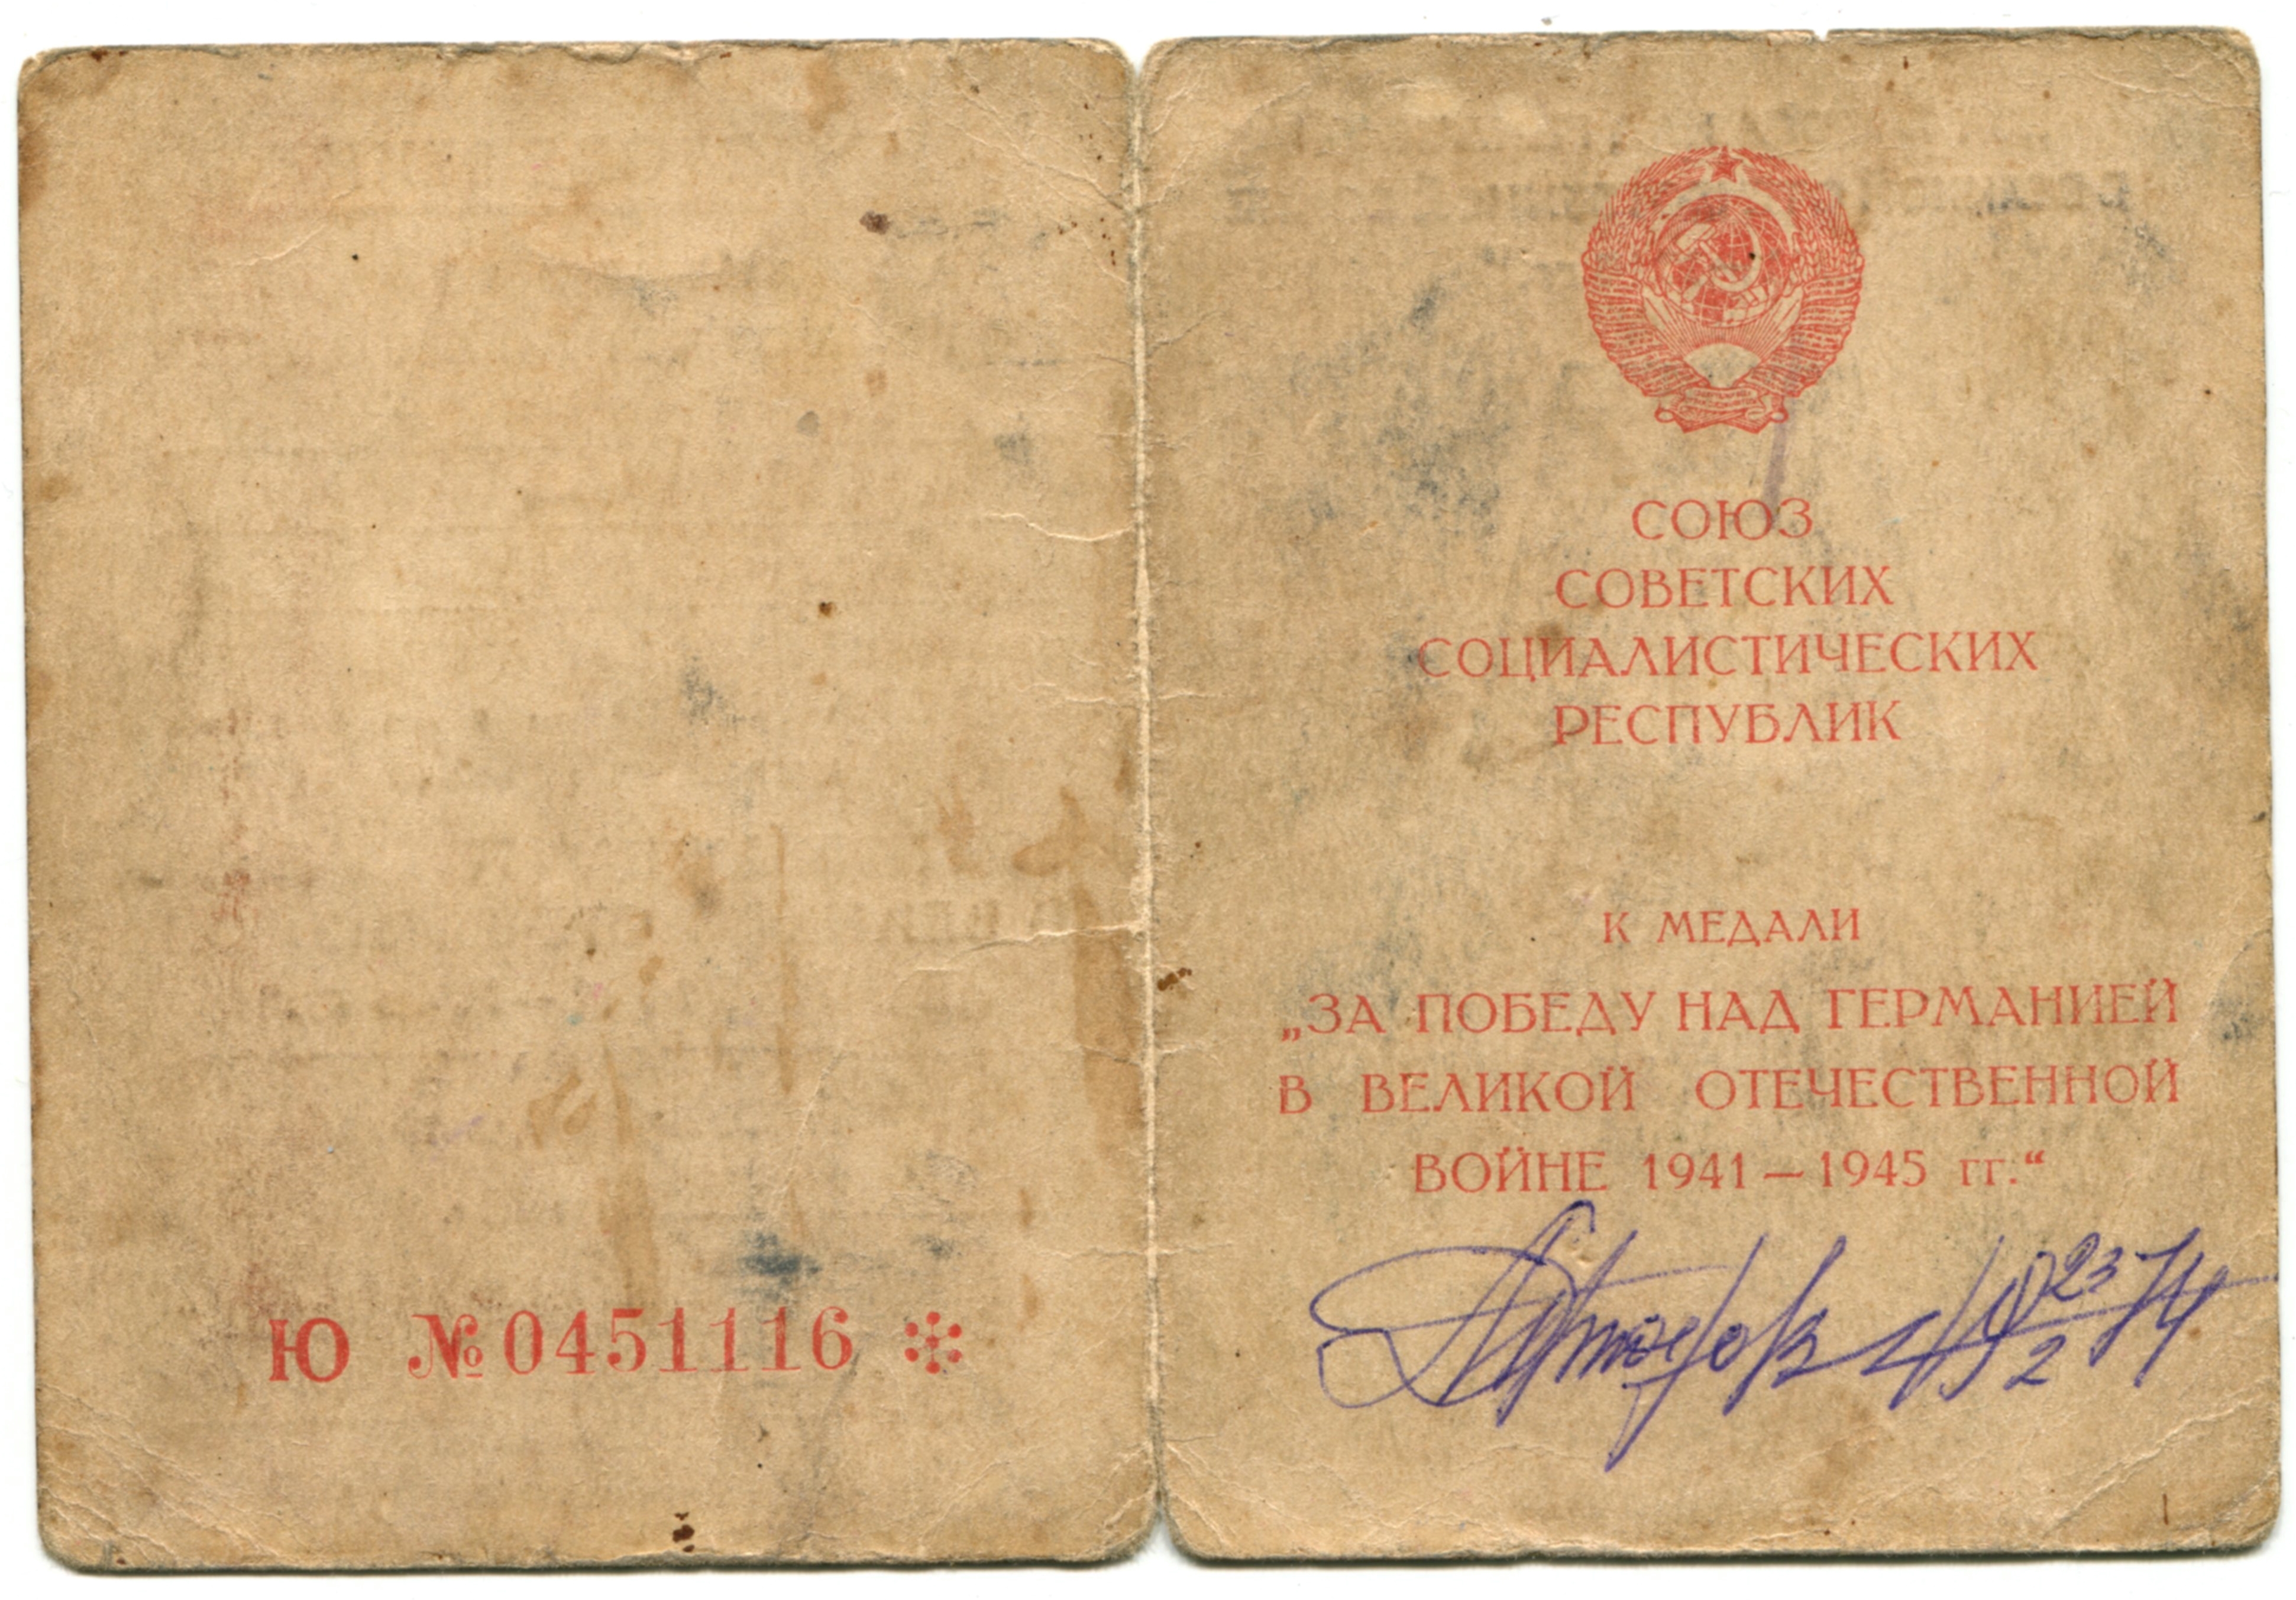 Ю № 0451116
СОЮЗ
СОВЕТСКИХ
СОЦИАЛИСТИЧЕСКИХ
РЕСПУБЛИК
К МЕДАЛИ
„ЗА ПОБЕДУ НАД ГЕРМАНИЕЙ
В ВЕЛИКОЙ ОТЕЧЕСТВЕННОЙ
ВОЙНЕ 1941 — 1945 гг.“